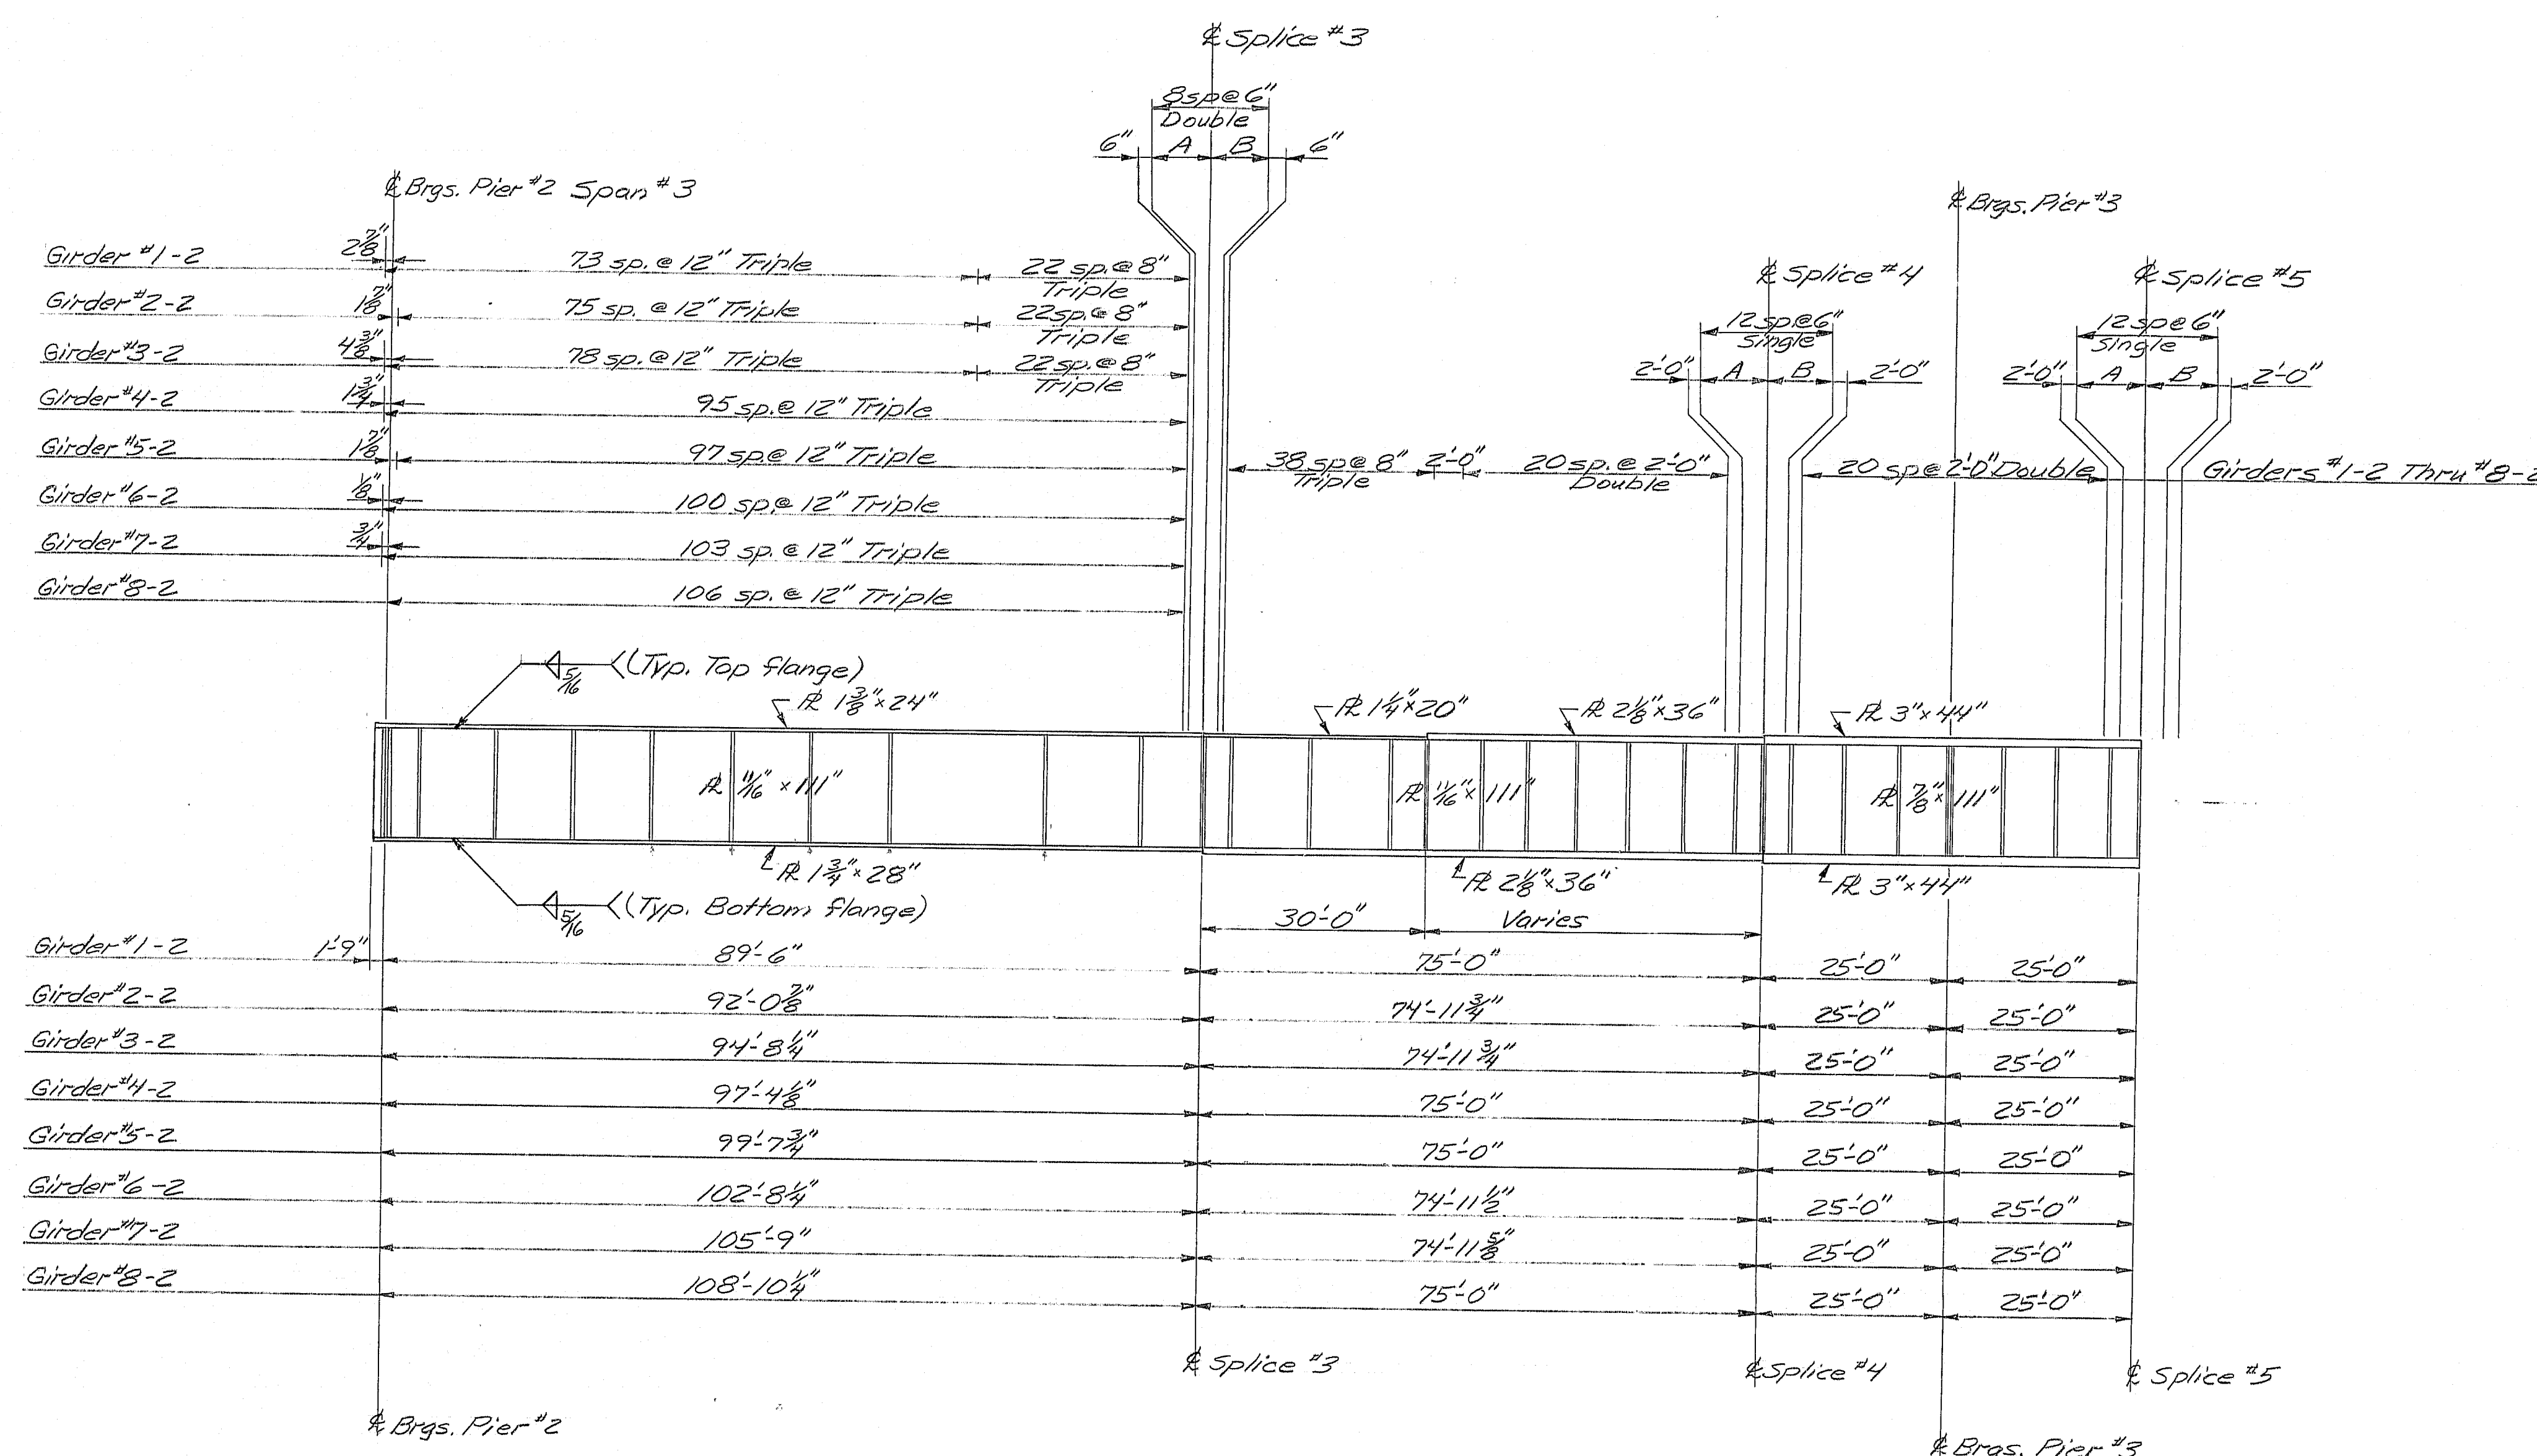 ℄ Splice #3
8sp@6"
Double
6" A B 6"
℄ Brgs. Pier #2 Span #3
℄ Brgs. Pier #3
Girder #1-2 2⅞" 73 sp. @ 12" Triple 22 sp. @ 8"
Triple
Girder #2-2 1⅞" 75 sp. @ 12" Triple 22 sp. @ 8"
Triple
Girder #3-2 4⅜" 78 sp. @ 12" Triple 22 sp. @ 8"
Triple
Girder #4-2 1¾" 95 sp. @ 12" Triple
Girder #5-2 1⅞" 97 sp. @ 12" Triple
Girder #6-2 ⅛" 100 sp. @ 12" Triple
Girder #7-2 ¾" 103 sp. @ 12" Triple
Girder #8-2 106 sp. @ 12" Triple
℄ Splice #4
12sp@6"
Single
2'-0" A B 2'-0"
℄ Splice #5
12sp@6"
Single
2'-0" A B 2'-0"
38 sp@ 8" 2'-0" 20 sp. @ 2'-0" 20 sp @ 2'-0" Double Girders #1-2 Thru #8-2
Triple Double
5/16 (Typ. Top flange)
℄ 1⅜" × 24"
PL 1¼" × 20"
PL 2⅛" × 36"
PL 3" × 44"
PL 11/16" × 111"
PL 11/16" × 111"
PL ⅞" × 111"
PL 1¾" × 28"
PL 2⅛" × 36"
PL 3" × 44"
5/16 (Typ. Bottom flange)
30'-0" Varies
Girder #1-2 1'-9" 89'-6" 75'-0" 25'-0" 25'-0"
Girder #2-2 92'-0⅞" 74'-11¾" 25'-0" 25'-0"
Girder #3-2 94'-8¼" 74'-11¾" 25'-0" 25'-0"
Girder #4-2 97'-4⅛" 75'-0" 25'-0" 25'-0"
Girder #5-2 99'-7¾" 75'-0" 25'-0" 25'-0"
Girder #6-2 102'-8¼" 74'-11½" 25'-0" 25'-0"
Girder #7-2 105'-9" 74'-11⅝" 25'-0" 25'-0"
Girder #8-2 108'-10¼" 75'-0" 25'-0" 25'-0"
℄ Splice #3
℄ Splice #4
℄ Splice #5
℄ Brgs. Pier #2
℄ Brgs. Pier #3